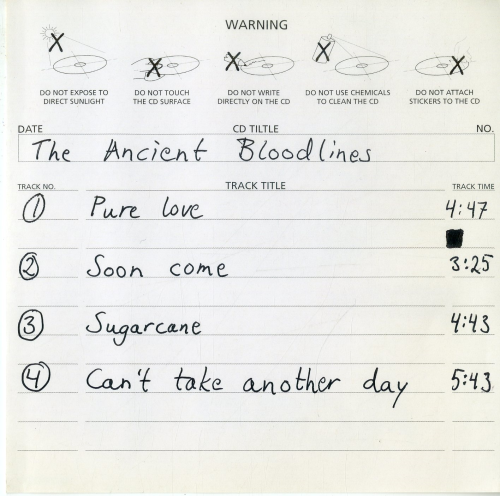 WARNING
DO NOT EXPOSE TO DIRECT SUNLIGHT
DO NOT TOUCH THE CD SURFACE
DO NOT WRITE DIRECTLY ON THE CD
DO NOT USE CHEMICALS TO CLEAN THE CD
DO NOT ATTACH STICKERS TO THE CD
DATE CD TILTLE NO.
The Ancient Bloodlines
TRACK NO. TRACK TITLE TRACK TIME
1 Pure love 4:47
2 Soon come 3:25
3 Sugarcane 4:43
4 Can't take another day 5:43